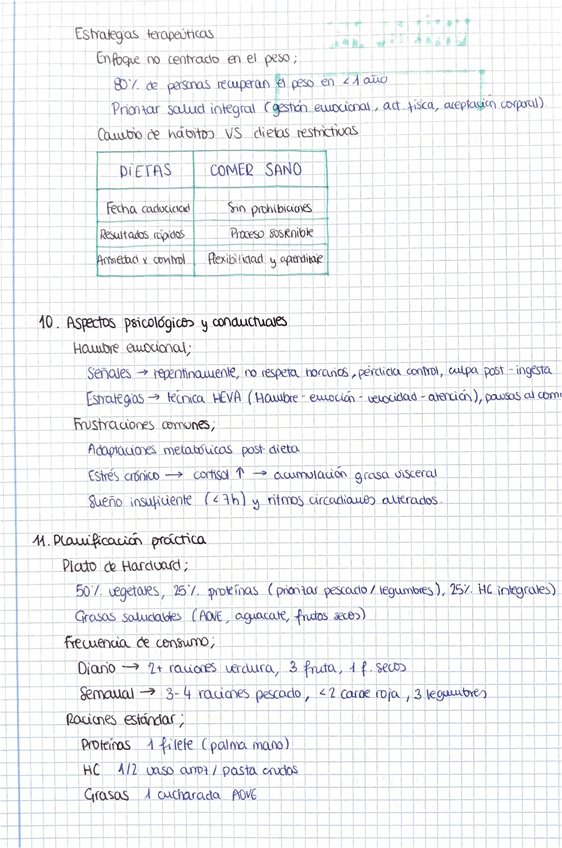 Estrategias terapeúticas
Enfoque no centrado en el peso;
80% de personas recuperan el peso en <1 año
Priorizar salud integral (gestión emocional, act. física, aceptación corporal)
Cambio de hábitos VS dietas restrictivas
DIETAS COMER SANO
Fecha caducidad Sin prohibiciones
Resultados rápidos Proceso sostenible
Ansiedad x control Flexibilidad y aprendizaje
10. Aspectos psicológicos y conductuales
Hambre emocional;
Señales → repentinamente, no respeta horarios, pérdida control, culpa post-ingesta
Estrategias → técnica HEVA (Hambre - emoción - velocidad - atención), pausas al com
Frustraciones comunes;
Adaptaciones metabólicas post-dieta
Estrés crónico → cortisol ↑ → acumulación grasa visceral
Sueño insuficiente (<7h) y ritmos circadianos alterados.
11. Planificación práctica
Plato de Hardvard;
50% vegetales, 25% proteínas (priorizar pescado / legumbres), 25% HC integrales)
Grasas saludables (AOVE, aguacate, frutos secos)
Frecuencia de consumo;
Diario → 2+ raciones verdura, 3 fruta, 1 f. secos
Semanal → 3-4 raciones pescado, <2 carne roja, 3 legumbres
Raciones estándar;
Proteínas 1 filete (palma mano)
HC 1/2 vaso arroz / pasta crudos
Grasas 1 cucharada AOVE